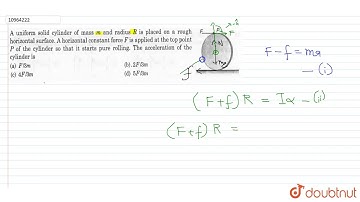 10964222
A uniform solid cylinder of mass m and radius R is placed on a rough
horizontal surface. A horizontal constant force F is applied at the top point
P of the cylinder so that it starts pure rolling. The acceleration of the
cylinder is
(a) F/3m (b). 2F/3m
(c) 4F/3m (d) 5F/3m
F
F
f
F - f = ma
— (i)
(F+f) R = Iα — (ii)
(F+f) R =
doubtnut